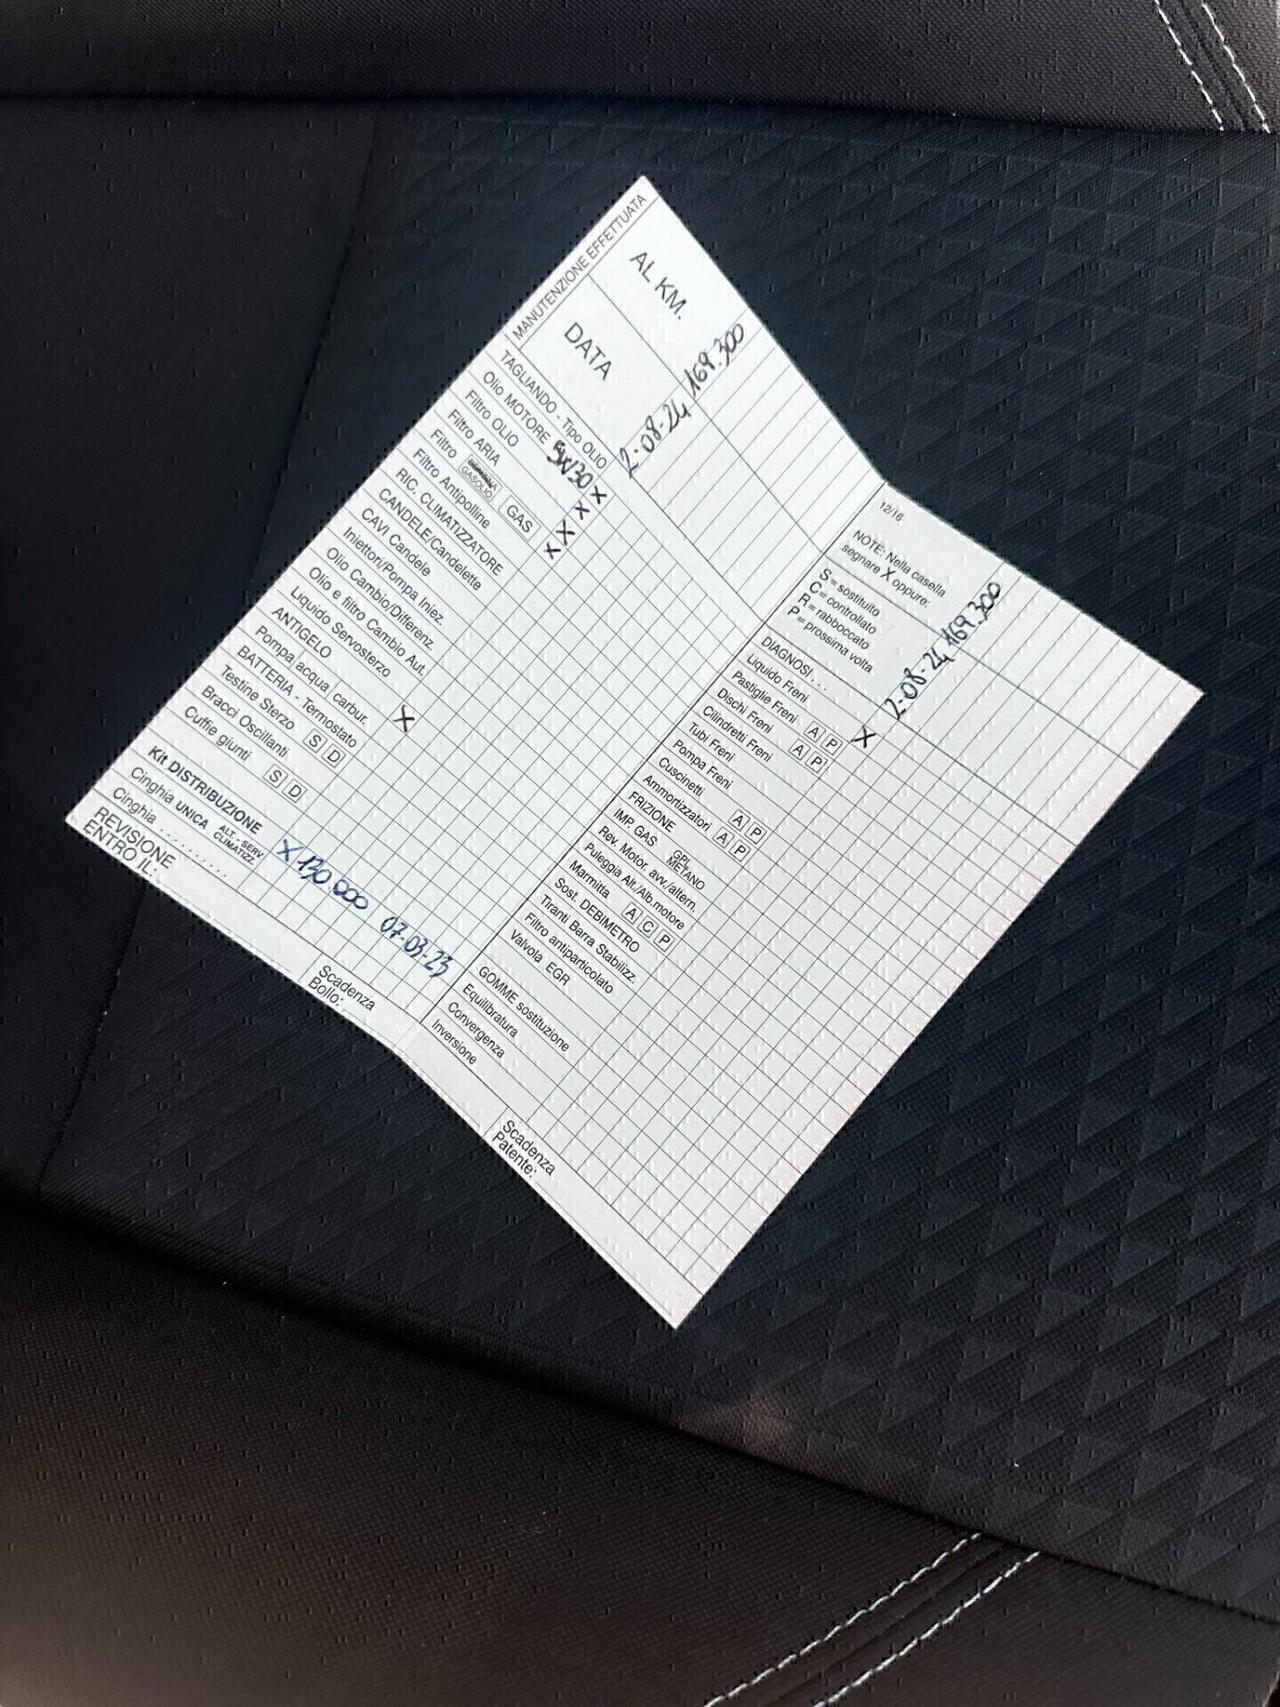 MANUTENZIONE EFFETTUATA
AL KM.
DATA
169.300
2-08-24
TAGLIANDO - Tipo OLIO
Olio MOTORE 5W30 X
Filtro OLIO X
Filtro ARIA X
Filtro GASOLIO GAS X
Filtro Antipolline
RIC. CLIMATIZZATORE
CANDELE/Candelette
CAVI Candele
Iniettori/Pompa Iniez.
Olio Cambio/Differenz.
Olio e filtro Cambio Aut.
Liquido Servosterzo
ANTIGELO X
Pompa acqua/carbur.
BATTERIA - Termostato
Testine Sterzo S D
Bracci Oscillanti
Cuffie giunti S D
Kit DISTRIBUZIONE X 130000 07-03-23
Cinghia UNICA ALT. - SERV. CLIMATIZZ.
Cinghia ..........
REVISIONE
ENTRO IL:
Scadenza
Bollo:
12/16
NOTE: Nella casella
segnare X oppure:
S = sostituito
C = controllato
R = rabboccato
P = prossima volta
169.300
2-08-24
DIAGNOSI . . .
Liquido Freni X
Pastiglie Freni A P
Dischi Freni A P
Cilindretti Freni
Tubi Freni
Pompa Freni
Cuscinetti A P
Ammortizzatori A P
FRIZIONE
IMP GAS GPL METANO
Rev. Motor. avv./altern.
Puleggia Alt./Alb.motore
Marmitta A C P
Sost. DEBIMETRO
Tiranti Barra Stabilizz.
Filtro antiparticolato
Valvola EGR
GOMME sostituzione
Equilibratura
Convergenza
Inversione
Scadenza
Patente: